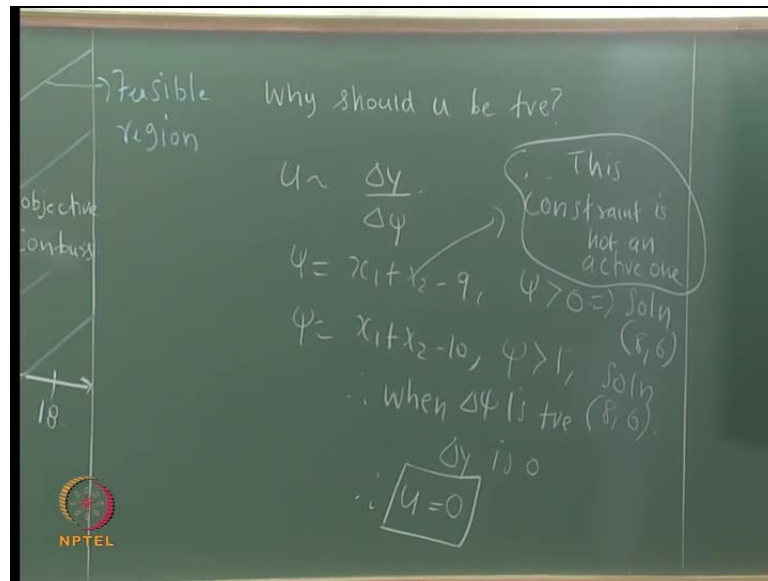 Feasible
region
objective
Contours
18
Why should u be +ve?
u ~ Δy / Δψ
∴ This
constraint is
not an
active one
ψ = x₁ + x₂ - 9, ψ > 0 ⇒ Soln
(8,6)
ψ = x₁ + x₂ - 10, ψ > 1, Soln
(8,6).
∴ When Δψ is +ve
Δy is 0
∴ u = 0
NPTEL